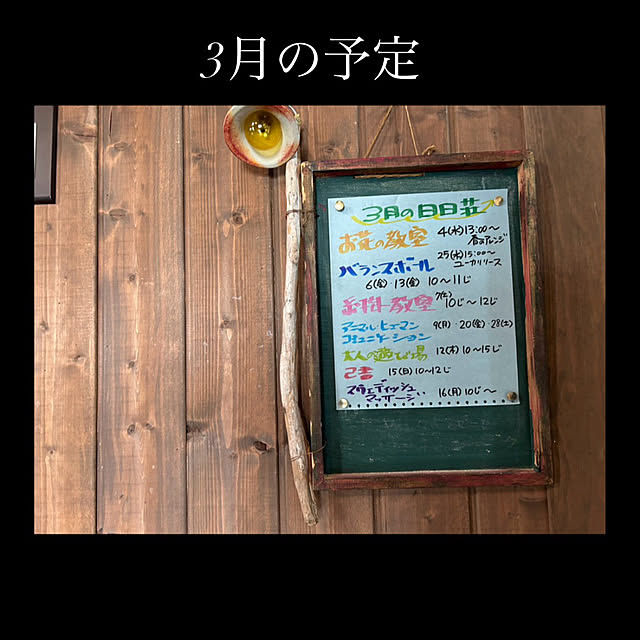 3月の予定
3月の日日荘
お花の教室 4(水)13:00〜
春のアレンジ
25(水)15:00〜
ユーカリリース
バランスボール
6(金)・13(金) 10〜11じ
お片付け教室 7(土) 10じ〜12じ
アニマルヒューマン 9(月)・20(金)・28(土)
コミュニケーション
大人の遊び場 12(木) 10〜15じ
己書 15(日) 10〜12じ
スウェディッシュ
マッサージ 16(月) 10じ〜